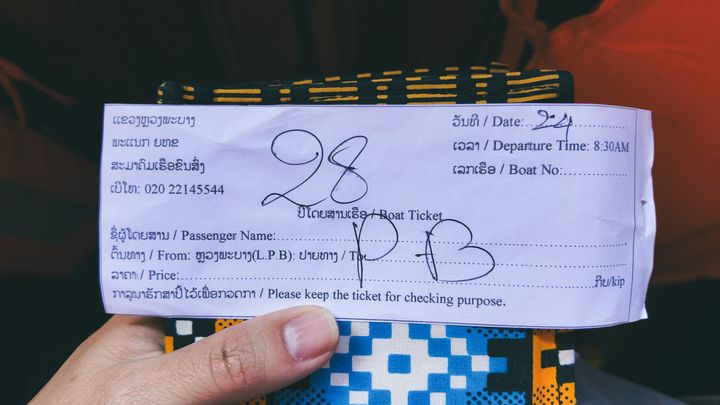 ແຂວງຫຼວງພະບາງ
ພະແນກ ຍທຂ
ສະມາຄົມເຮືອຂົນສົ່ງ
ເບີໂທ: 020 22145544
ວັນທີ / Date: 24
ເວລາ / Departure Time: 8:30AM
ເລກເຮືອ / Boat No:
28
ປີ້ໂດຍສານເຮືອ / Boat Ticket
ຊື່ຜູ້ໂດຍສານ / Passenger Name:
ຕົ້ນທາງ / From: ຫຼວງພະບາງ(L.P.B): ປາຍທາງ / To: PB
ລາຄາ / Price: ກີບ/kip
ກາລຸນາຮັກສາປີ້ໄວ້ເພື່ອກວດກາ / Please keep the ticket for checking purpose.